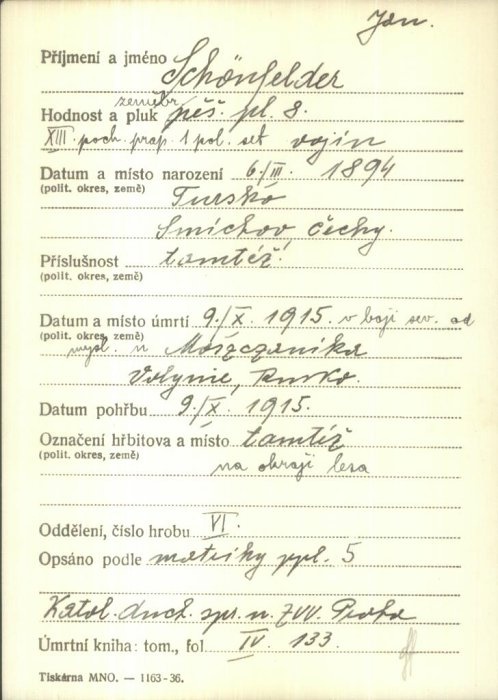 Jan.
Příjmení a jméno Schönfelder
zeměbr.
Hodnost a pluk pěš. pl. 8.
XIII poch. prap. 1 pol. set vojín
Datum a místo narození 6./III. 1894
(polit. okres, země)
Tursko
Smíchov, Čechy.
Příslušnost tamtéž.
(polit. okres, země)
Datum a místo úmrtí 9./X. 1915. v boji sev. od
(polit. okres, země)
mysl. u Moszczanika
Volynie, Rusko.
Datum pohřbu 9./X. 1915.
Označení hřbitova a místo tamtéž
(polit. okres, země)
na okraji lesa
Oddělení, číslo hrobu VI.
Opsáno podle matriky ppl. 5
Katol. duch. spr. u ZVV. Praha
Úmrtní kniha: tom., fol. IV. 133.
Tiskárna MNO. — 1163-36.